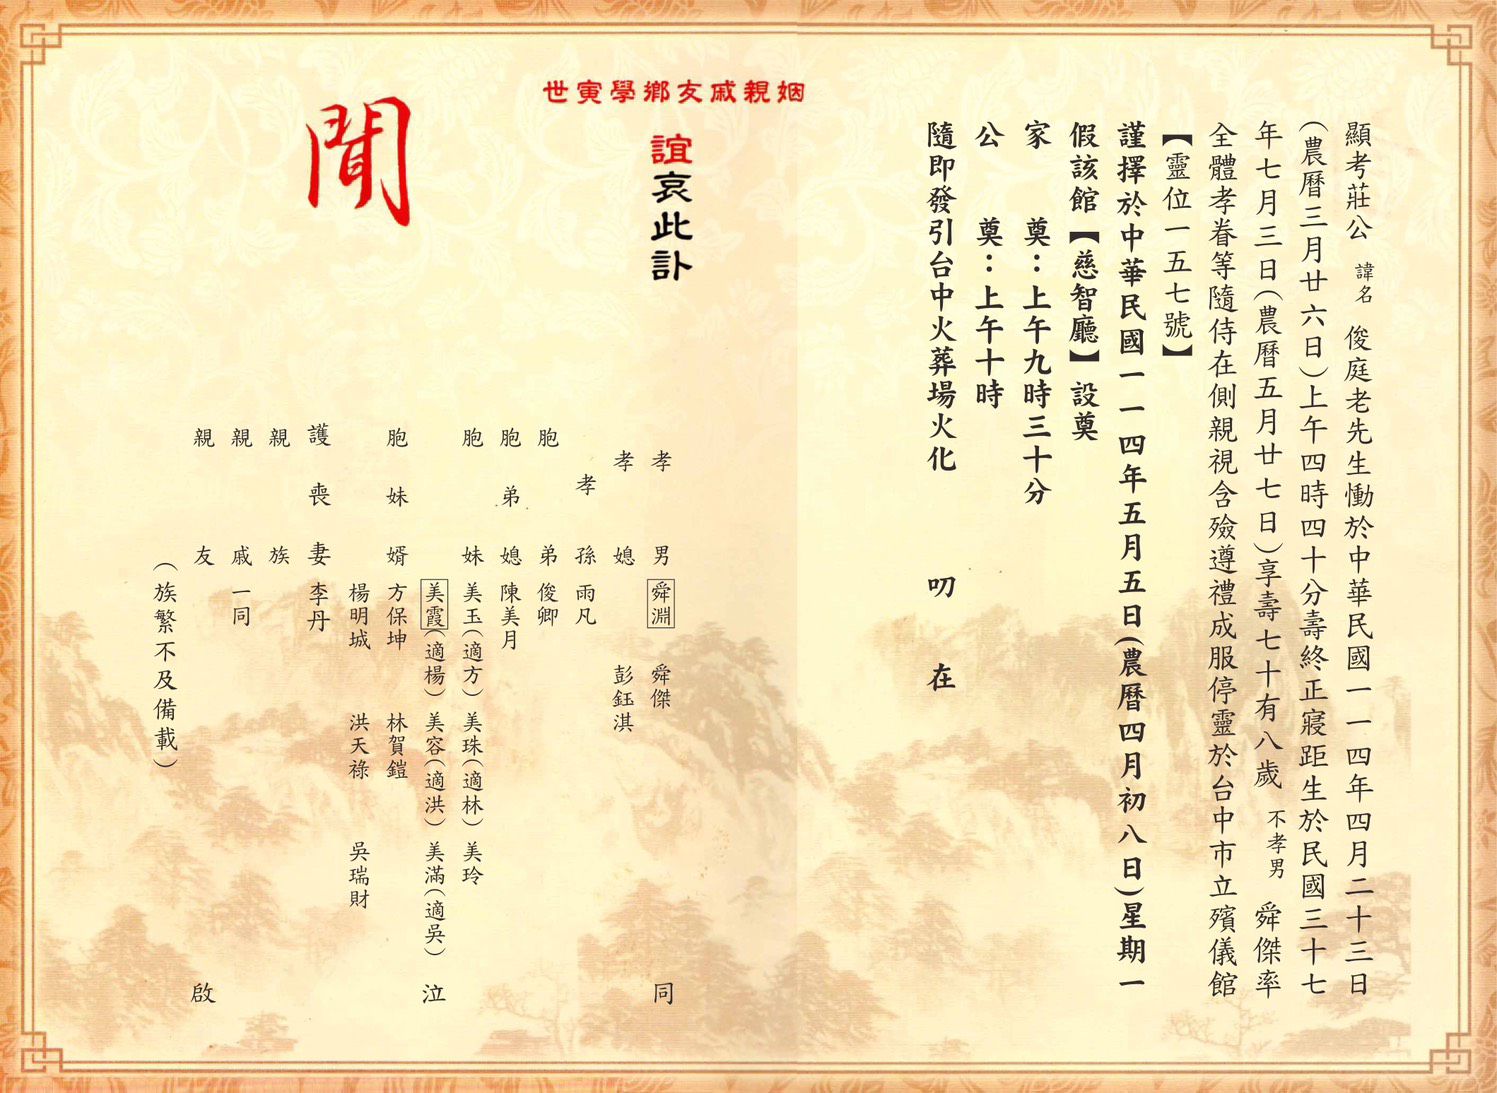 顯考莊公 諱名 俊庭老先生慟於中華民國一一四年四月二十三日
(農曆三月廿六日)上午四時四十分壽終正寢距生於民國三十七
年七月三日(農曆五月廿七日)享壽七十有八歲 不孝男 舜傑率
全體孝眷等隨侍在側親視含殮遵禮成服停靈於台中市立殯儀館
【靈位一五七號】
謹擇於中華民國一一四年五月五日(農曆四月初八日)星期一
假該館【慈智廳】設奠
家 奠：上午九時三十分
公 奠：上午十時
隨即發引台中火葬場火化 叨 在
姻親戚友鄉學寅世
誼哀此訃
聞
孝男 舜淵 舜傑 同
孝媳 彭鈺淇
孝孫 雨凡
胞弟 俊卿
胞弟媳 陳美月
胞妹 美玉(適方) 美珠(適林) 美玲
美霞(適楊) 美容(適洪) 美滿(適吳) 泣
胞妹婿 方保坤 林賀鎧
楊明城 洪天祿 吳瑞財
護喪妻 李丹
親族
親戚 一同
親友 啟
(族繁不及備載)